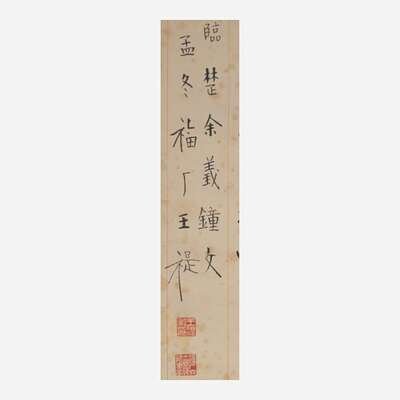 臨楚余義鐘文
孟冬福厂王禔